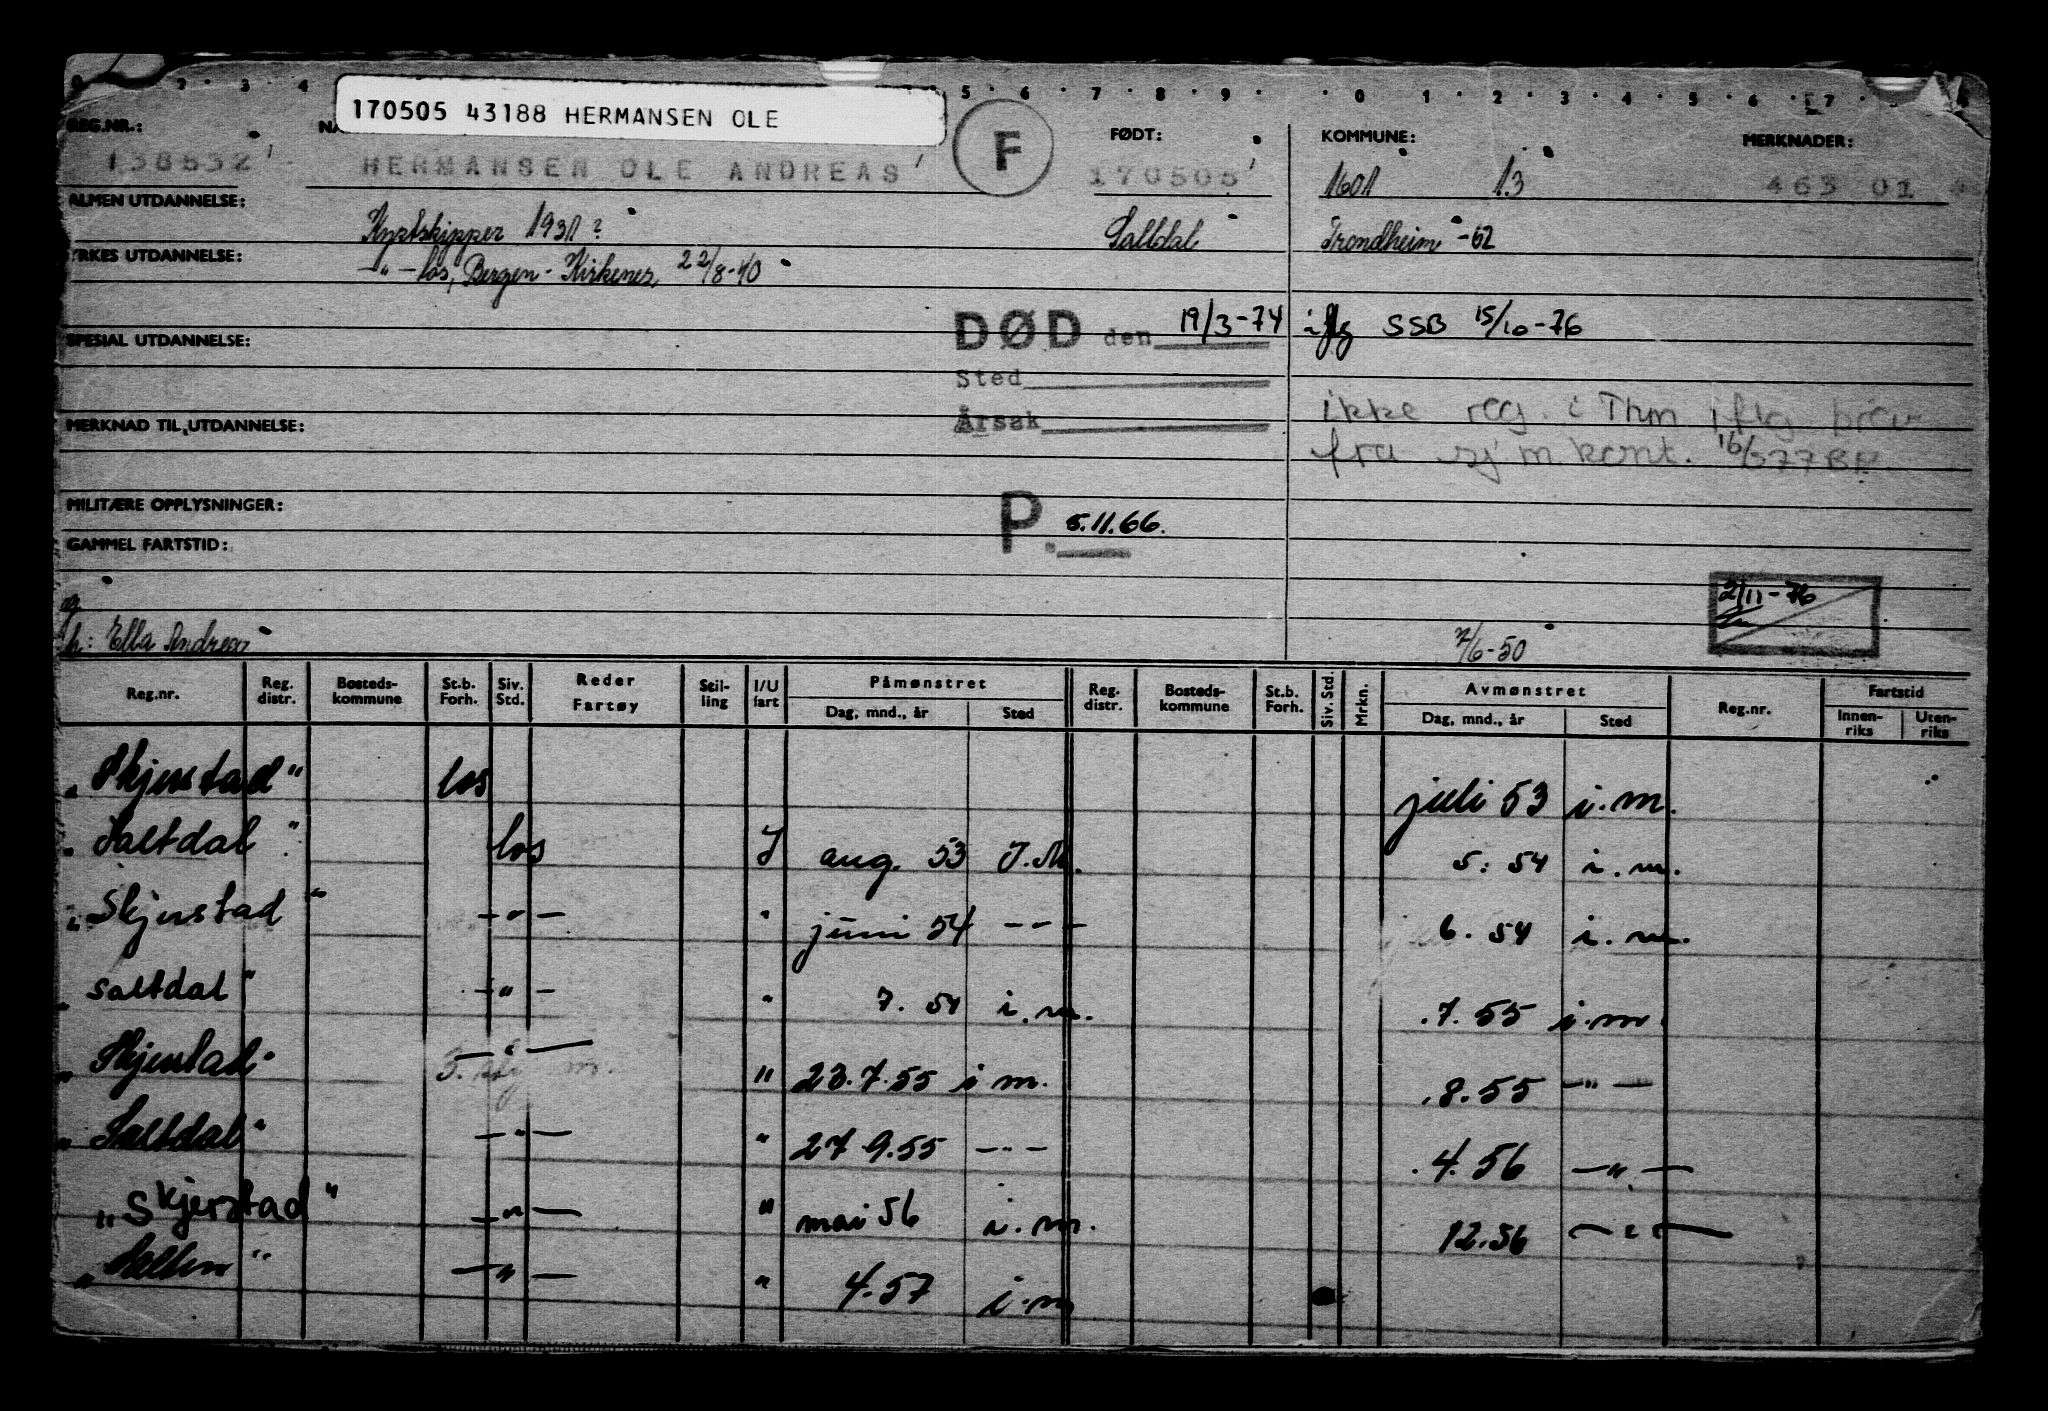 170505 43188 HERMANSEN OLE
REG.NR.: FØDT: KOMMUNE: MERKNADER:
138532 HERMANSEN OLE ANDREAS F 170505 1601 13 463 01
ALMEN UTDANNELSE:
Kystskipper 1931? Saltdal Trondheim -62
YRKES UTDANNELSE: -"- los, Bergen - Kirkenes 22/8-40
DØD den 19/3-74 iflg SSB 15/10-76
SPESIAL UTDANNELSE:
Sted
Årsak ikke reg. i Thm iflg brev
MERKNAD TIL UTDANNELSE:
fra sjm kont.
MILITÆRE OPPLYSNINGER: P. 5.11.66.
GAMMEL FARTSTID:
2/11-76
h: Ella Andrea 7/6-50
Reg.nr. Reg. distr. Bosteds-kommune St.b. Forh. Siv. Std. Reder Fartøy Stil-ling I/U fart Påmønstret Dag, mnd., år Sted Reg. distr. Bosteds-kommune St.b. Forh. Siv. Std. Mrkn. Avmønstret Dag, mnd., år Sted Reg.nr. Fartstid Innen-riks Uten-riks
"Skjerstad" los juli 53 i.m.
"Saltdal" los I aug. 53 I.M. 5. 54 i.m.
"Skjerstad" -"- " juni 54 -"- 6. 54 i.m.
"Saltdal" -"- " 7. 54 i.m. 7. 55 i.m.
"Skjerstad" -"- " 23.7.55 i m. 8.55 -"-
"Saltdal" -"- " 27 9.55 -"- 4. 56 -"-
"Skjerstad" -"- " mai 56 i.m. 12.56 -"-
"Salten" -"- " 4.57 i.m